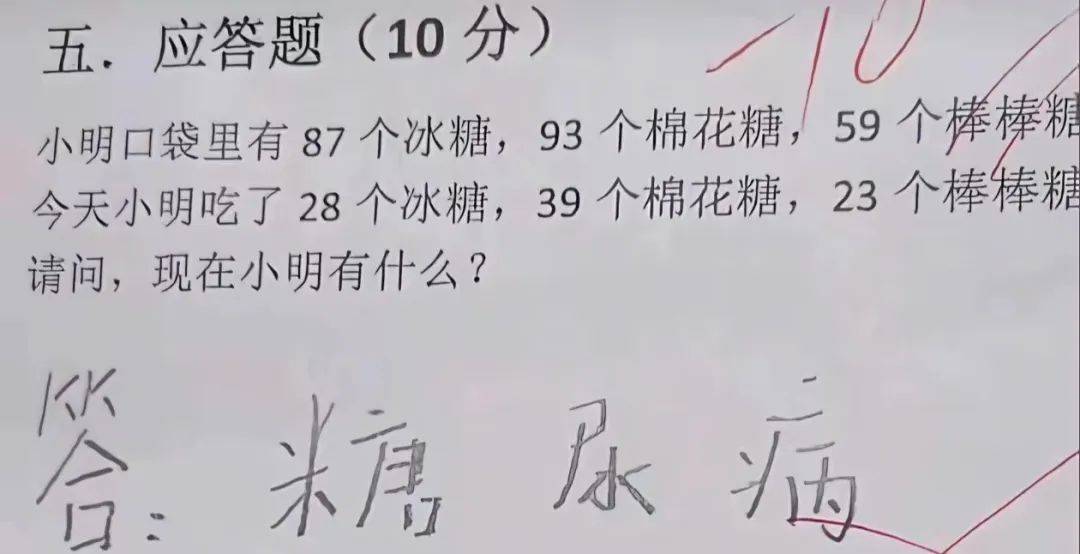 五．应答题（10 分）
-10
小明口袋里有 87 个冰糖，93 个棉花糖，59 个棒棒糖
今天小明吃了 28 个冰糖，39 个棉花糖，23 个棒棒糖
请问，现在小明有什么？
答：糖 尿 病